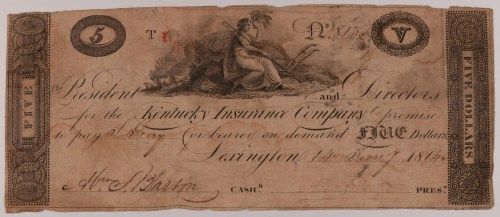 5 T Nº V
The President and Directors
for the Kentucky Insurance Company promise
to pay or bearer on demand FIVE Dollars
Lexington 1814
CASHR. PREST.
FIVE
FIVE DOLLARS